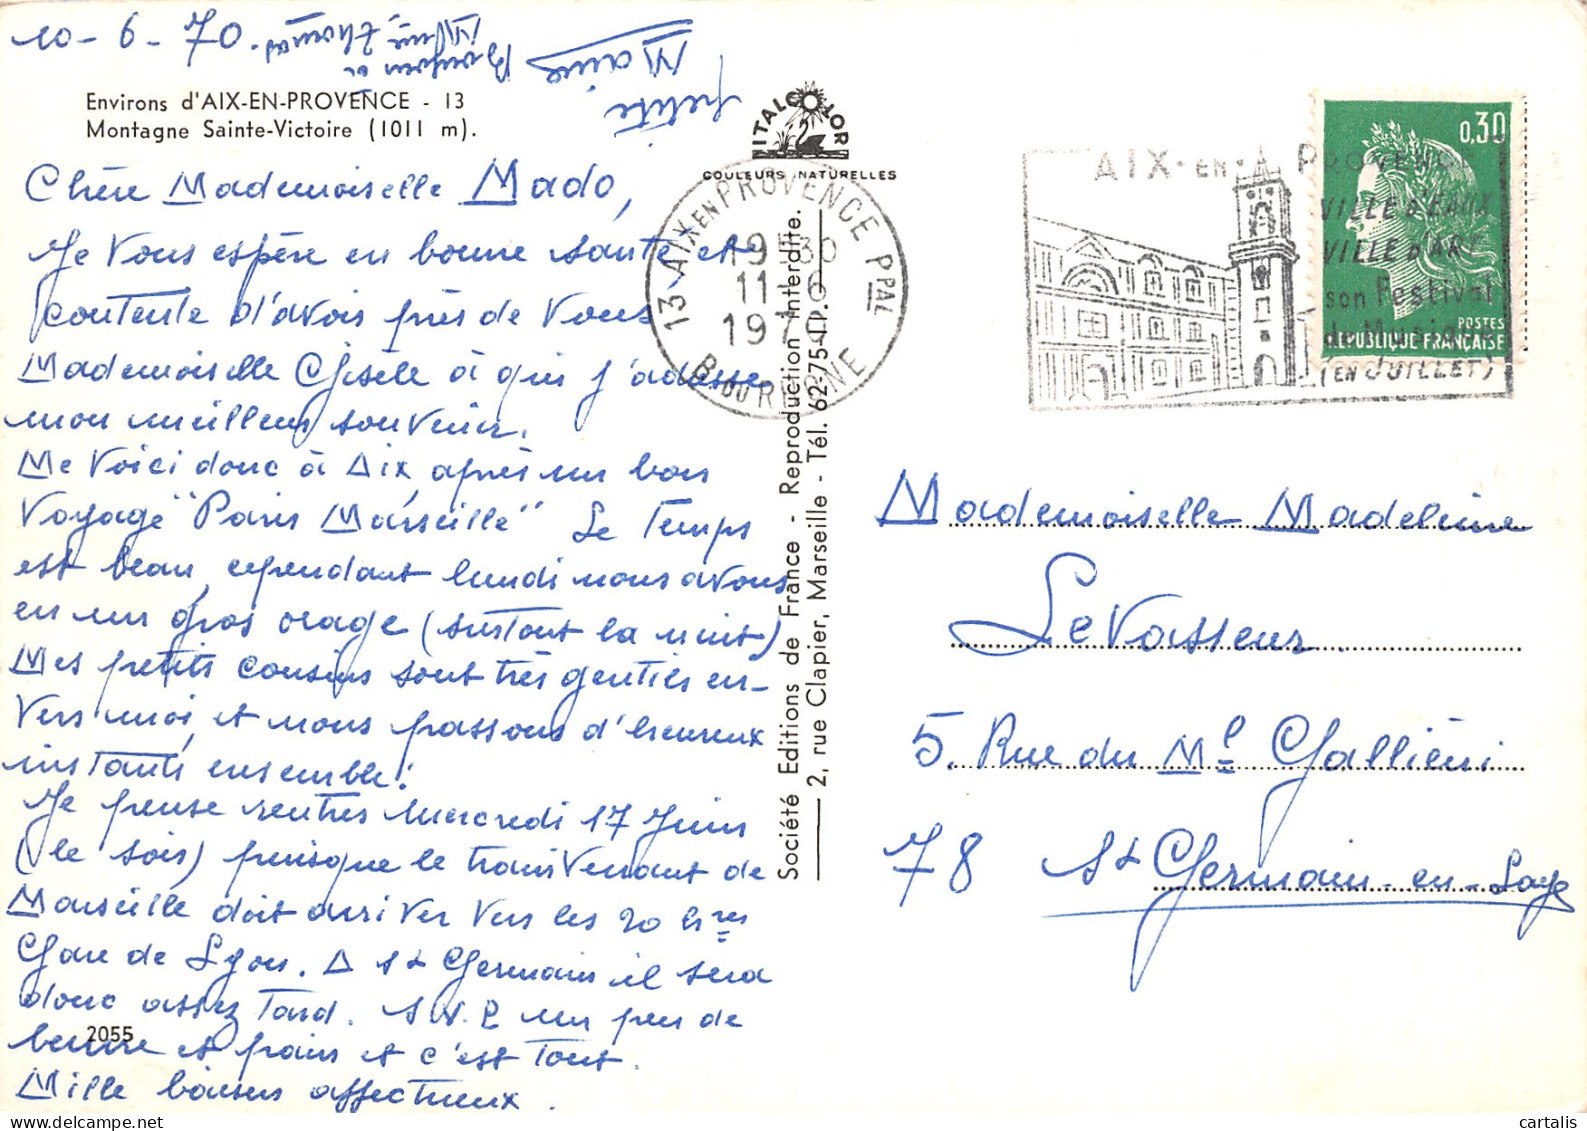 10-6-70.
petite
Marie
Bonjour à
Mme Thomas.
Environs d'AIX-EN-PROVENCE - 13
Montagne Sainte-Victoire (1011 m).
Chère Mademoiselle Mado,
Je Vous espère en bonne santé et
contente d'avoir près de Vous
Mademoiselle Gisèle à qui j'adresse
mon meilleur souvenir.
Me Voici donc à Aix, après un bon
Voyage "Paris Marseille" Le Temps
est beau, cependant lundi nous avons
eu un gros orage (surtout la nuit)
Mes petits cousins sont très gentils en-
Vers moi, et nous passons d'heureux
instants ensemble!
Je pense rentrer Mercredi 17 Juin
(le soir) puisque le train Venant de
Marseille doit arriver vers les 20 hres
Gare de Lyon. A St Germain il sera
donc assez Tard. S.V.P. un peu de
beurre et pain et c'est Tout.
Mille baisers affectueux.
2055
ITALCOLOR
COULEURS NATURELLES
Société Editions de France - Reproduction Interdite.
2, rue Clapier, Marseille - Tél. 62-75-11.
13 AIX EN PROVENCE PPAL
19 H 30
11-6
1970
B. DU RHONE
AIX-EN-PROVENCE
VILLE d'EAUX
VILLE d'ART
son Festival
de Musique
(EN JUILLET)
0,30
POSTES
REPUBLIQUE FRANÇAISE
Mademoiselle Madeleine
Le Vasseur.
5. Rue du Mal Galliéni
78 St Germain-en-Laye
cartalis